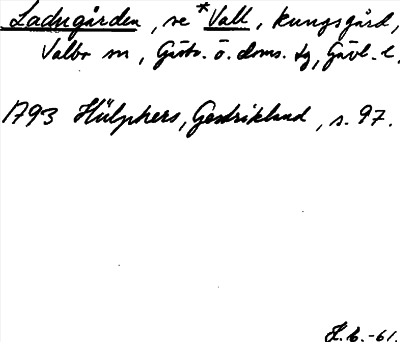 Ladugården, se *Vall, kungsgård,
Valbo sn, Gästr. ö. doms. tg, Gävl. l.
1793 Hülphers, Gestrikland, s. 97.
H. b. -61.